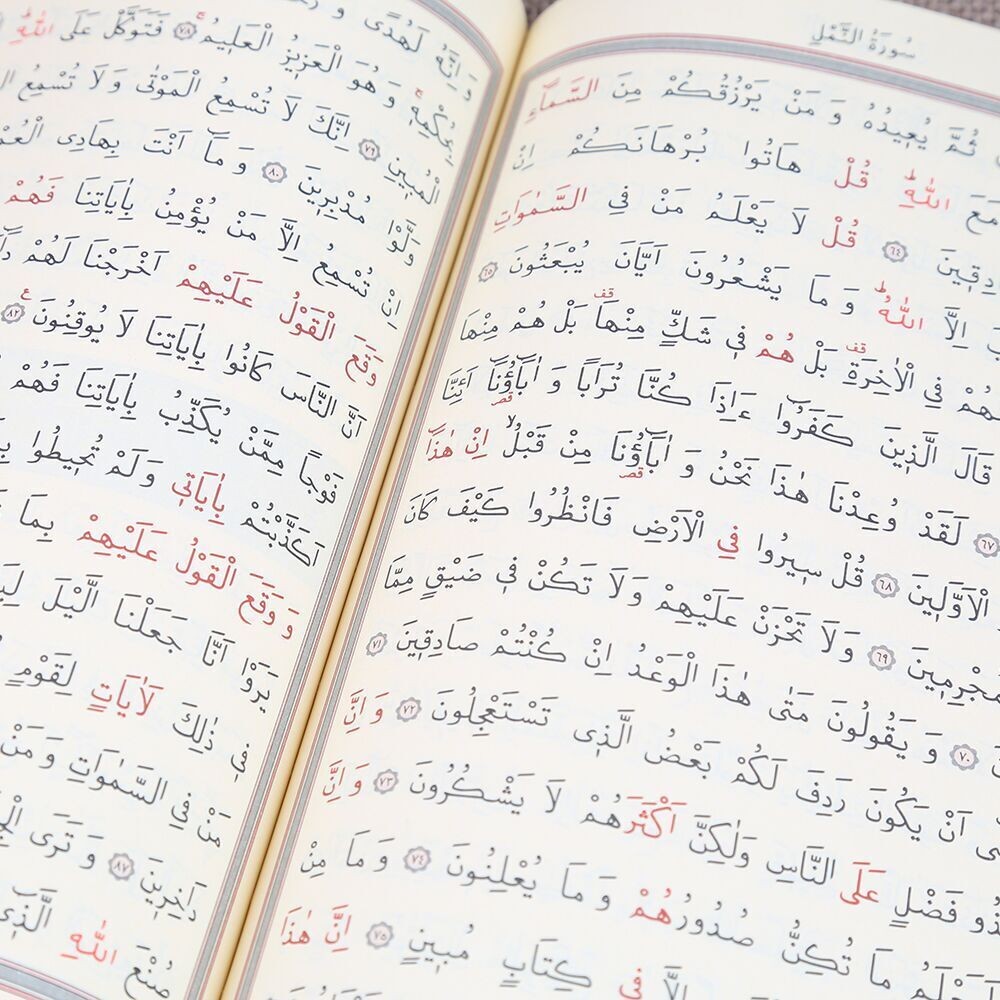 سُورَةُ النَّمْلِ
ثُمَّ يُع۪يدُهُ وَ مَنْ يَرْزُقُكُمْ مِنَ السَّمَٓاءِ
مَعَ اللّٰهِ قُلْ هَاتُوا بُرْهَانَكُمْ اِنْ
دِق۪ينَ ٦٤ قُلْ لَا يَعْلَمُ مَنْ فِي السَّمٰوَاتِ
اِلَّا اللّٰهُ وَ مَا يَشْعُرُونَ اَيَّانَ يُبْعَثُونَ ٦٥
هُمْ فِي الْاٰخِرَةِ بَلْ هُمْ ف۪ي شَكٍّ مِنْهَا بَلْ هُمْ مِنْهَا
قَالَ الَّذ۪ينَ كَفَرُٓوا ءَاِذَا كُنَّا تُرَابًا وَ اٰبَٓاؤُ۬نَٓا اَئِنَّا
٦٧ لَقَدْ وُعِدْنَا هٰذَا نَحْنُ وَ اٰبَٓاؤُ۬نَا مِنْ قَبْلُ اِنْ هٰذَٓا
الْاَوَّل۪ينَ ٦٨ قُلْ س۪يرُوا فِي الْاَرْضِ فَانْظُرُوا كَيْفَ كَانَ
جْرِم۪ينَ ٦٩ وَلَا تَحْزَنْ عَلَيْهِمْ وَلَا تَكُنْ ف۪ي ضَيْقٍ مِمَّا
٧٠ وَ يَقُولُونَ مَتٰى هٰذَا الْوَعْدُ اِنْ كُنْتُمْ صَادِق۪ينَ ٧١
اَنْ يَكُونَ رَدِفَ لَكُمْ بَعْضُ الَّذ۪ي تَسْتَعْجِلُونَ ٧٢ وَ اِنَّ
ذُو فَضْلٍ عَلَى النَّاسِ وَلٰكِنَّ اَكْثَرَهُمْ لَا يَشْكُرُونَ ٧٣ وَ اِنَّ
مَا تُكِنُّ صُدُورُهُمْ وَ مَا يُعْلِنُونَ ٧٤ وَ مَا مِنْ
اِلَّا ف۪ي كِتَابٍ مُب۪ينٍ ٧٥ اِنَّ هٰذَا
وَ اِنَّهُ لَهُدًى وَ
بِحُكْمِه۪ وَ هُوَ الْعَز۪يزُ الْعَل۪يمُ ٧٨ فَتَوَكَّلْ عَلَى اللّٰهِ
الْمُب۪ينِ ٧٩ اِنَّكَ لَا تُسْمِعُ الْمَوْتٰى وَلَا تُسْمِعُ
وَلَّوْا مُدْبِر۪ينَ ٨٠ وَ مَٓا اَنْتَ بِهَادِي الْعُمْ
اِنْ تُسْمِعُ اِلَّا مَنْ يُؤْمِنُ بِاٰيَاتِنَا فَهُمْ
وَقَعَ الْقَوْلُ عَلَيْهِمْ اَخْرَجْنَا لَهُمْ
اَنَّ النَّاسَ كَانُوا بِاٰيَاتِنَا لَا يُوقِنُونَ ٨٢
فَوْجًا مِمَّنْ يُكَذِّبُ بِاٰيَاتِنَا فَهُمْ
اَكَذَّبْتُمْ بِاٰيَات۪ي وَلَمْ تُح۪يطُوا
وَ وَقَعَ الْقَوْلُ عَلَيْهِمْ بِمَا
يَرَوْا اَنَّا جَعَلْنَا الَّيْلَ
ف۪ي ذٰلِكَ لَاٰيَاتٍ لِقَوْمٍ
مَنْ فِي السَّمٰوَاتِ وَ مَنْ
دَاخِر۪ينَ ٨٧ وَ تَرَى
صُنْعَ اللّٰهِ الَّذ۪ي